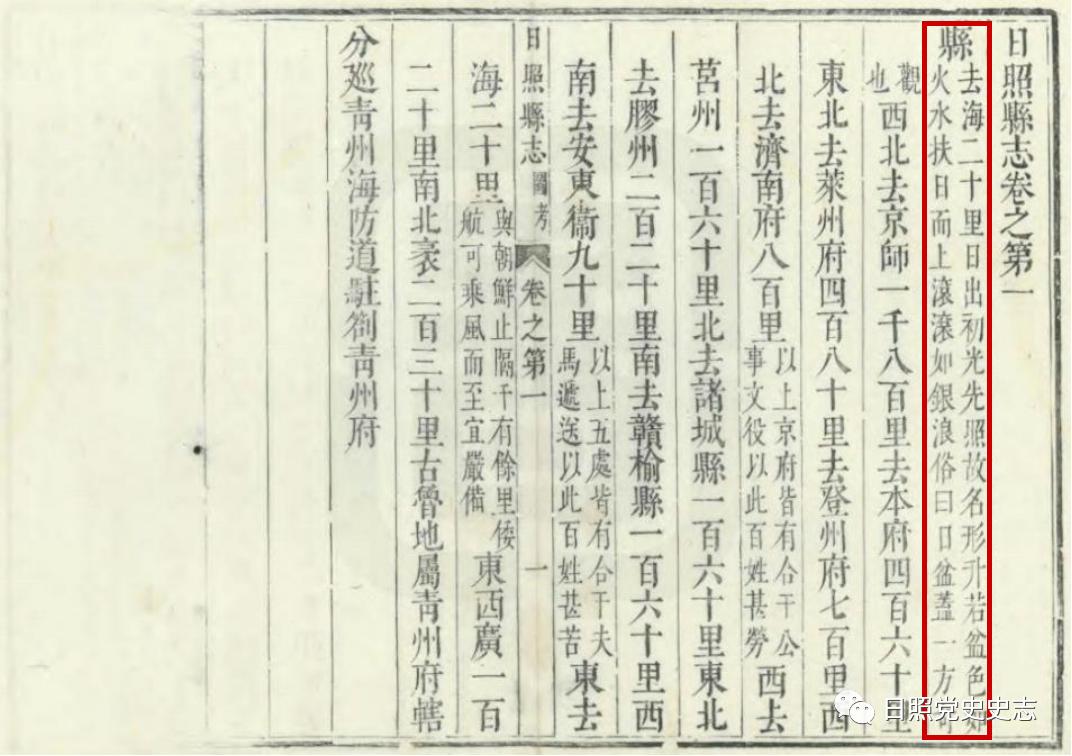 日照縣志卷之第一
縣去海二十里日出初光先照故名形升若盆色如
火水扶日而上滾滾如銀浪俗曰日盆蓋一方可
觀也西北去京師一千八百里去本府四百六十里
東北去萊州府四百八十里去登州府七百里西
北去濟南府八百里以上京府皆有合干公事文役以此百姓甚勞西去
莒州一百六十里北去諸城縣一百六十里東北
去膠州二百二十里南去贛榆縣一百六十里西
南去安東衞九十里以上五處皆有合干夫馬遞送以此百姓甚苦東去
日照縣志 圖考 卷之第一 一
海二十里與朝鮮止隔千有餘里倭航可乘風而至宜嚴備東西廣一百
二十里南北袤二百三十里古魯地屬青州府轄
分巡青州海防道駐劄青州府
日照党史史志